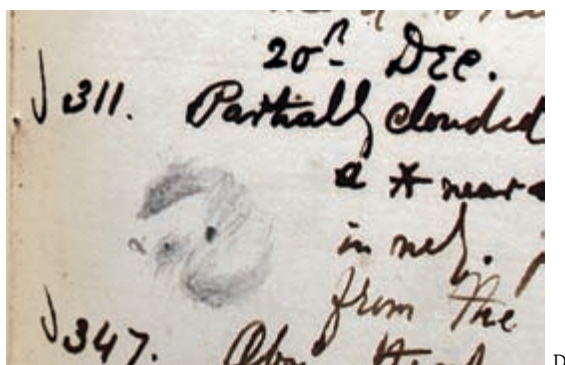 20th Dec.
√311. Partially clouded
a * near
in neb.
from the
√347.